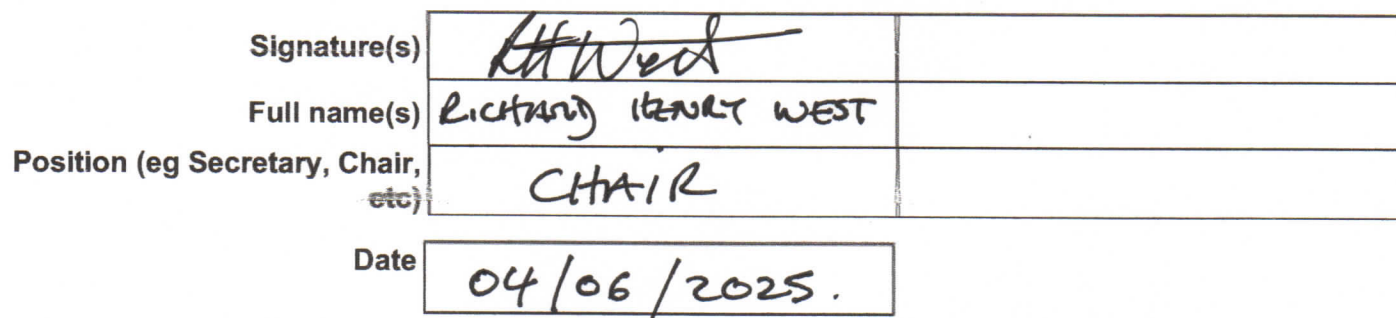 Signature(s) RHWest
Full name(s) RICHARD HENRY WEST
Position (eg Secretary, Chair,
etc) CHAIR
Date 04/06/2025.